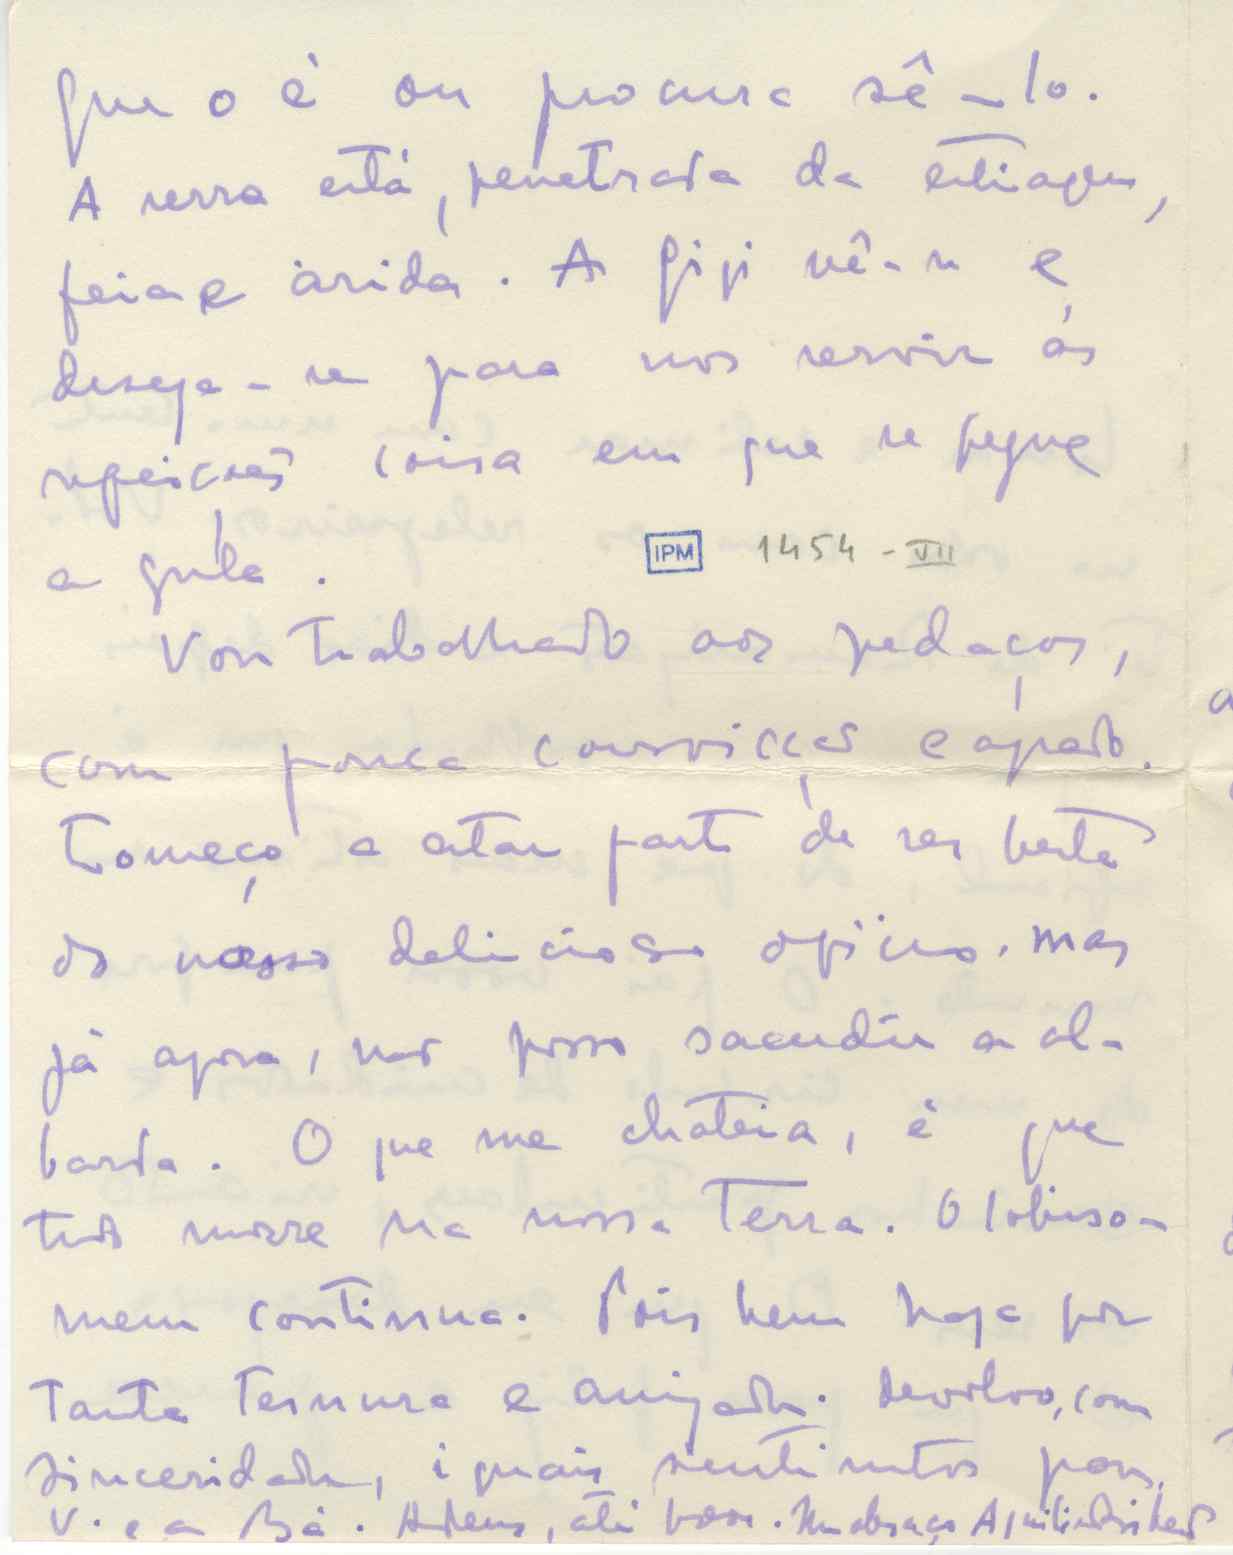 que o é ou procura sê-lo.
A serra está, penetrada da estiagem,
feia e árida. A Gigi vê-se e
deseja-se para nos servir ás
refeições coisa em que se pegue
a gula.
IPM 1454-VII
Vou trabalhado aos pedaços,
com pouca convicção e agrado.
Começo a estar farto de ser besta
do nosso delicioso ofício. mas
já agora, não posso sacudir a al-
barda. O que me chateia, é que
tudo morre na nossa Terra. O lobiso-
mem continua. Pois bem haja por
tanta ternura e amizade. Devolvo, com
sinceridade, iguais sentimentos para
V. e a Bá. Adeus, até breve. Um abraço Aquilino Ribeiro